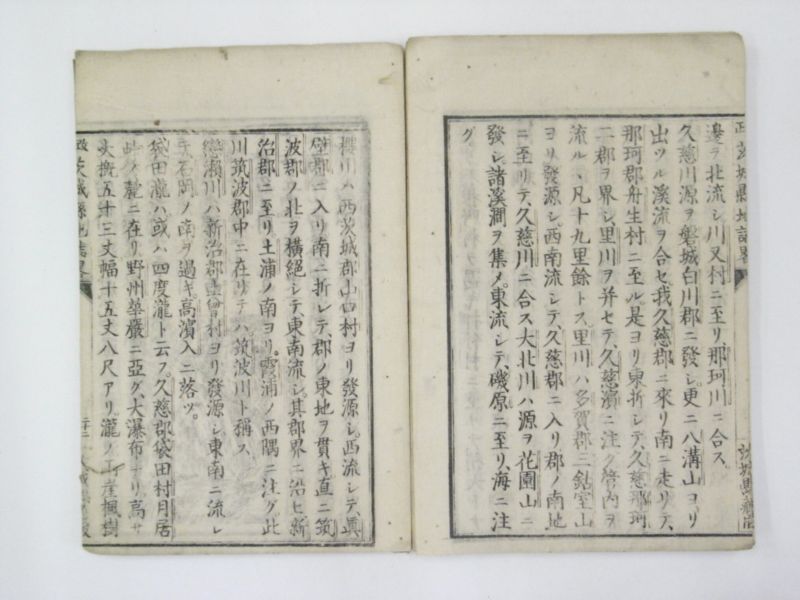 邊ヲ北流シ川又村ニ至リ、那珂川ニ合ス。
久慈川源ヲ磐城白川郡ニ發シ、更ニ八溝山ヨリ
出ツル溪流ヲ合セ、我久慈郡ニ來リ南ニ走リテ、
那珂郡舟生村ニ至ル。是ヨリ東折シテ、久慈那珂
二郡ヲ界シ里川ヲ并セテ、久慈濱ニ注ク管內ヲ
流ル、凡十九里餘トス。里川ハ多賀郡三鈷室山
ヨリ發源シ、西南流シテ、久慈郡ニ入リ郡ノ南地
ニ至リテ、久慈川ニ合ス大北川ハ源ヲ花園山ニ
發シ、諸溪澗ヲ集メ、東流シテ、磯原ニ至リ、海ニ注
グ
櫻川ハ西茨城郡山口村ヨリ發源シ、西流シテ、眞
壁郡ニ入リ南ニ折レテ、郡ノ東地ヲ貫キ直ニ筑
波郡ノ北ヲ橫絕シテ、東南流シ。其郡界ニ沿ヒ新
治郡ニ至リ土浦ノ南ヨリ。霞浦ノ西隅ニ注グ。此
川筑波郡中ニ在リテハ筑波川ト稱ス
戀瀨川ハ新治郡曾村ヨリ發源シ東南ニ流レ
石岡ノ南ヲ過キ高濱入ニ落ツ。
袋田瀧ハ。或ハ四度瀧ト云フ。久慈郡袋田村月居
ノ麓ニ在リ野州華嚴ニ亞グ、大瀑布ナリ高サ
大概五十三丈幅十五丈八尺アリ。瀧ノ崖楓樹
茨城縣地誌畧